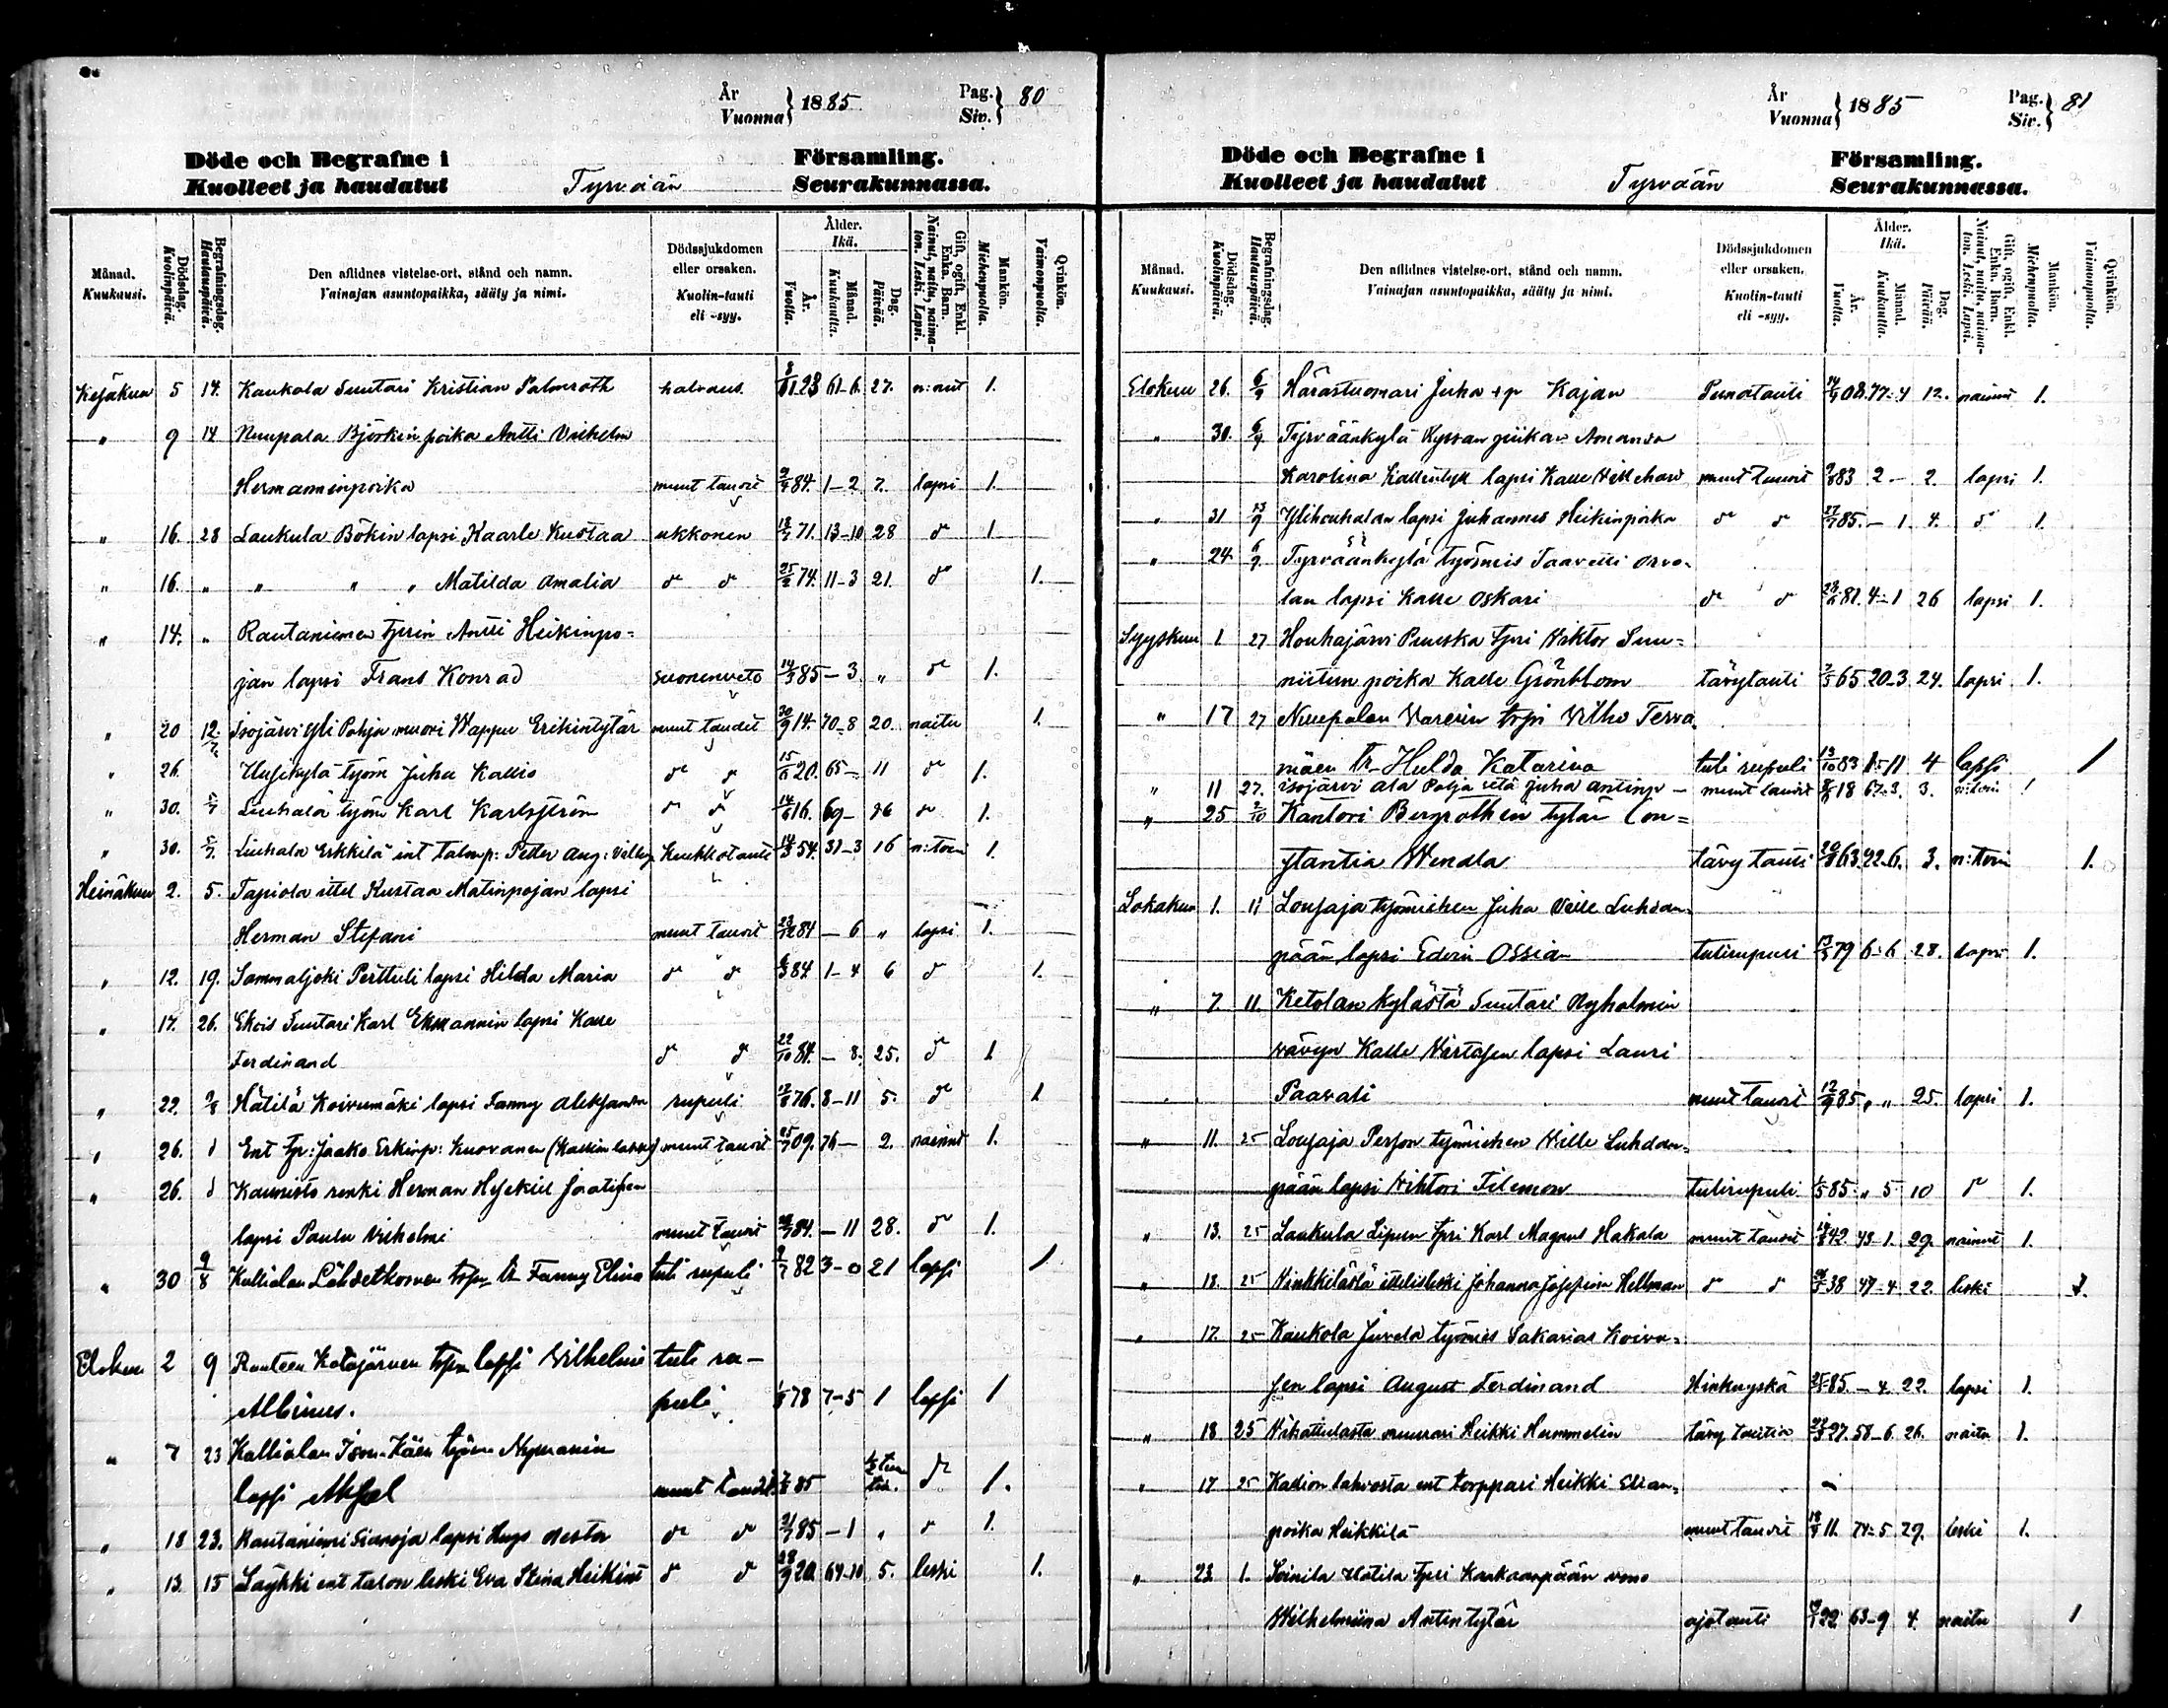 År
Vuonna } 1885
Pag.
Siv. } 80
Döde och Begrafne i Församling.
Kuolleet ja haudatut Tyrvään Seurakunnassa.
Månad. Kuukausi.
Dödsdag. Kuolinpäivä.
Begrafningsdag. Hautauspäivä.
Den aflidnes vistelse-ort, stånd och namn.
Vainajan asuntopaikka, sääty ja nimi.
Dödssjukdomen eller orsaken.
Kuolin-tauti eli -syy.
Ålder. Ikä.
År. Vuotta.
Månad. Kuukautta.
Dag. Päivää.
Gift, ogift, Enkl. Enka. Barn.
Nainut, naitu, naimaton. Leski. Lapsi.
Mankön. Miehenpuolta.
Qvinkön. Vaimonpuolta.
Kesäkuu 5 14. Kaukola Suutari Kristian Palmroth halvaus. 61-6. 27. 1.
" 9 14 Nuupala Björkin poika Antti Vilhelm
Hermanninpoika muut taudit 84. 1-2 7. lapsi 1.
" 16. 28 Laukula Bökin lapsi Kaarle Kustaa ukkonen 71. 13-10 28 d:o 1
" 16. " " " " Matilda Amalia d:o d:o 25/2 74. 11-3 21. d:o 1.
" 14. " Rautaniemen tprin Antti Heikinpo=
jan lapsi Frans Konrad suonenveto 14/3 85 - 3. " d:o 1.
" 20 12/7 Isojärvi Yli Pohja muori Wappu Erikintytär muut taudit 30/9 14. 70-8 20. naitu 1.
" 26. Uusikylä työm Juha Kallio d:o d:o 15/6 20. 65 - 11 d:o 1.
" 30. 5/7 Liuhala työm Karl Karlström d:o d:o 14/6 16. 69 - 16 d:o 1.
" 30. 5/7. Liuhala Erkkilä int talonp: Petter Aug: 14/3 54. 31-3 16 1.
Heinäkuu 2. 5. Tapiola ittel Kustaa Matinpojan lapsi
Herman Stefani muut taudit 84 - 6 " lapsi 1.
" 12. 19. Sammaljoki Perttuli lapsi Hilda Maria d:o d:o 84. 1-4 6 d:o 1.
" 17. 26. Ekois Suutari Karl Ekmannin lapsi Kalle
Ferdinand d:o d:o 22/10 84. - 8. 25. d:o 1
" 22. 9/8 Hätilä Koivumäki lapsi Fanny Aleksandra rupuli 76. 8-11 5. d:o 1
" 26. d Ent tp: Jaako Erkinp: Kuovanen muut taudit 09. 76 - 2. nainut 1.
" 26. d Kaunisto renki Herman
lapsi Paulu Vilhelmi muut taudit 84. - 11 28. d:o 1.
" 30 9/8 Kallialan Lähdetkorven tr Fanny Elina tuli rupuli 9/7 82 3-0 21 lapsi 1
Elokuu 2 9 Ruuteen Kotajärven lapsi Vilhelmi tuli ru-
Albinus. puli 78 7-5 1 lapsi 1
" 7 23 Kallialan työm Nymanin
lapsi Aksel muut taudit. 85 d:o 1.
" 18 23. Rautaniemi lapsi Hugo Nestor d:o d:o 21/7 85 - 1 " d:o 1.
" 13 15 Laukki ent talon leski Eva Stina d:o d:o 20. 64-10 5. leski 1.
År
Vuonna } 1885
Pag.
Siv. } 81
Döde och Begrafne i Församling.
Kuolleet ja haudatut Tyrvään Seurakunnassa.
Månad. Kuukausi.
Dödsdag. Kuolinpäivä.
Begrafningsdag. Hautauspäivä.
Den aflidnes vistelse-ort, stånd och namn.
Vainajan asuntopaikka, sääty ja nimi.
Dödssjukdomen eller orsaken.
Kuolin-tauti eli -syy.
Ålder. Ikä.
År. Vuotta.
Månad. Kuukautta.
Dag. Päivää.
Gift, ogift, Enkl. Enka. Barn.
Nainut, naitu, naimaton. Leski. Lapsi.
Mankön. Miehenpuolta.
Qvinkön. Vaimonpuolta.
Elokuu 26. 6/9 Härästuomari Juha Kajan Punatauti 08. 77-4 12. nainut 1.
" 30. 6/9 Tyrväänkylä piikan Amanda
Karolina lapsi Kalle muut taudit 83 2 - 2. lapsi 1.
" 31 13/9 Ylihouhalan lapsi Juhannes Heikinpoika d:o d:o 27/7 85. - 1 4. d:o 1.
" 24. 6/9 Tyrväänkylä työmies Taavetti Orvo-
lan lapsi Kalle Oskari d:o d:o 81. 4-1 26 lapsi 1.
Syyskuu 1 27 Houhajärvi Pruuska tpri Viktor Suu=
niitun poika Kalle Grönblom tävytauti 65 20-3 24. lapsi 1.
" 17 27 Nuupalan Varerin Vilho Terva
mäen tr Hulda Katarina tuli rupuli 13/10 83 1-11 4 lapsi 1
" 11 27. Isojärvi Ala Pohja setä Juha Antinp - muut taudit 18 67-3. 3. 1
" 25 2/10 Kantori Bergrothin tytär Con=
stantia Wendla tävytauti 63. 22-6. 3. 1.
Lokakuu 1. 11 Lousaja työmiehen Juha Ville Luhdan=
pään lapsi Edvin Ossian tulirupuli 79 6-6 28. lapsi 1.
" 7. 11. Ketolan kylästä Suutari Nyholmin
vävyn Kalle Virtasen lapsi Lauri
Paavali muut taudit 12/9 85. " " 25. lapsi 1.
" 11. 25 Lousaja työmiehen Ville Luhdan=
pään lapsi Vihtori Filemon tulirupuli 85. " 5 10 d:o 1.
" 13. 25 Laukula Lipun tpri Karl Magnus Hakala muut taudit 42. 43-1. 29. nainut 1.
" 18. 25 Vinkkilästä Johanna Josefina Hellman d:o d:o 38 47-4. 22. leski 1.
" 17. 25 Kaukola Juvela työmies Sakarias Koivu=
sen lapsi August Ferdinand Hinkuyskä 85. - 4. 22. lapsi 1.
" 18 25 muurari Heikki Hummelin 27. 58-6. 26. 1.
" 17 25 ent torppari Heikki Elian=
poika Heikkilä muut taudit 11. 74-5 29. leski 1.
" 23. 1. Soinila Hätilä tpri Kaukaanpään vmo
Wilhelmiina Antintytär ajotauti 22. 63-9 4. naitu 1